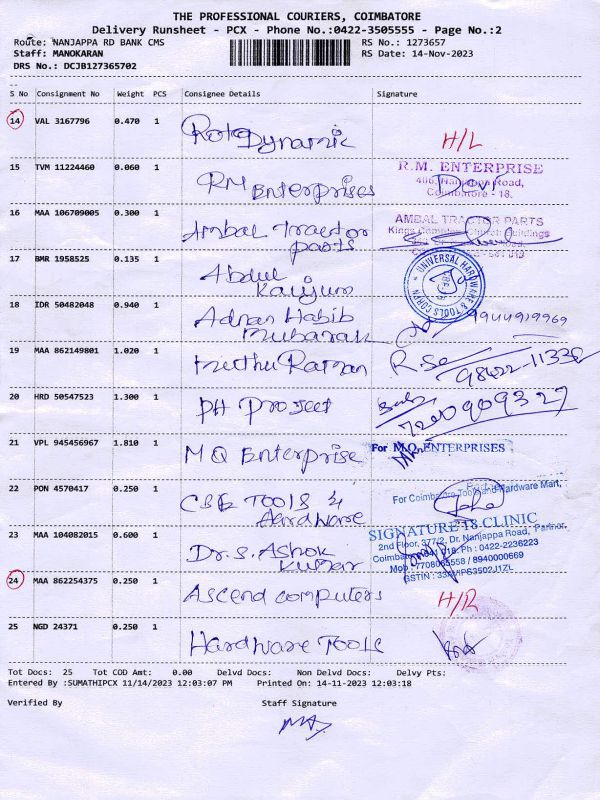 THE PROFESSIONAL COURIERS, COIMBATORE
Delivery Runsheet - PCX - Phone No.:0422-3505555 - Page No.:2
Route: NANJAPPA RD BANK CMS RS No.: 1273657
Staff: MANOKARAN RS Date: 14-Nov-2023
DRS No.: DCJB127365702
S No Consignment No Weight PCS Consignee Details Signature
14 VAL 3167796 0.470 1 Roto Dynamic H/L
15 TVM 11224460 0.060 1 RM Enterprises R.M. ENTERPRISE
Coimbatore - 18.
16 MAA 106709005 0.300 1 Ambal Tractor parts AMBAL TRACTOR PARTS
17 BMR 1958525 0.135 1 Abdul Kaiyum UNIVERSAL HARDWARE & TOOLS CORPN
18 IDR 50482048 0.940 1 Adnan Habib Mubarak 9944919969
19 MAA 862149801 1.020 1 Muthu Raman
20 HRD 50547523 1.300 1 PH Project
21 VPL 945456967 1.810 1 MQ Enterprise For M.Q. ENTERPRISES
22 PON 4570417 0.250 1 CBE TOOLS & Hardware For Coimbatore Tools and Hardware Mart,
23 MAA 104082015 0.600 1 Dr. S. Ashok Kumar SIGNATURE 18 CLINIC
2nd Floor, 377/2, Dr. Nanjappa Road,
Ph : 0422-2236223
24 MAA 862254375 0.250 1 Ascend computers H/R
25 NGD 24371 0.250 1 Hardware Tools
Tot Docs: 25 Tot COD Amt: 0.00 Delvd Docs: Non Delvd Docs: Delvy Pts:
Entered By :SUMATHIPCX 11/14/2023 12:03:07 PM Printed On: 14-11-2023 12:03:18
Verified By Staff Signature